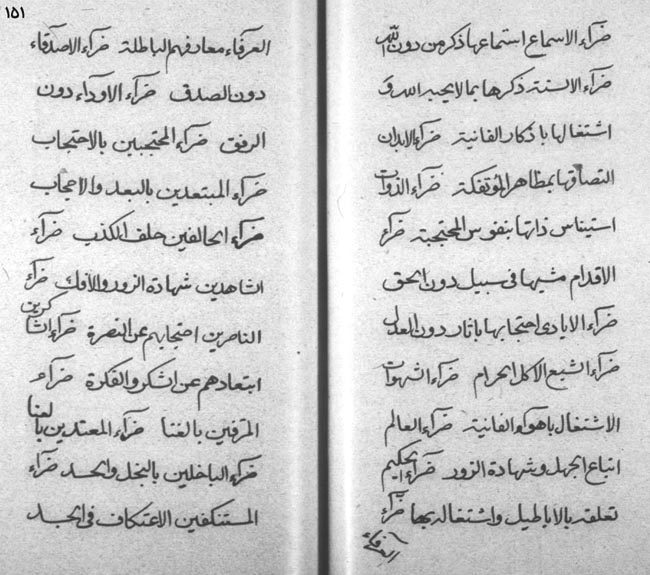 ضرآء الاسماع استماعها ذكر من دون الله
ضرآء الالسنة ذكرها بما لا يحبه الله و
اشتغالها باذكار الفانية ضرآء الابدان
التصاقها بمظاهر المؤتفكة ضرآء الذوات
استيناس ذاتها بنفوس المحتجبة ضرآء
الاقدام مشيها فى سبيل دون الحق
ضرآء الايادى احتجابها باثار دون العدل
ضرآء الشبع الاكل الحرام ضرآء الشهوات
الاشتغال باهوآء الفانية ضرآء العالم
اتباع الجهل وشهادة الزور ضرآء الحكيم
تعلقه بالاباطيل واشتغاله بها ضرآء
العرفاء
١٥١
العرفاء معارفهم الباطلة ضرآء الاصدقاء
دون الصدق ضرآء الاودآء دون
الرفق ضرآء المحتجبين بالاحتجاب
ضرآء المبتعدين بالبعد والاعجاب
ضرآء الحالفين حلف الكذب ضرآء
الشاهدين شهادة الزور والافك ضرآء
الناصرين احتجابهم عن النصرة ضرآء الشاكرين
ابتعادهم عن الشكر والفكرة ضرآء
المترفين بالغنا ضرآء المعتدين بالغنا
ضرآء الباخلين بالبخل والحسد ضرآء
المستنكفين الاعتكاف فى الحسد